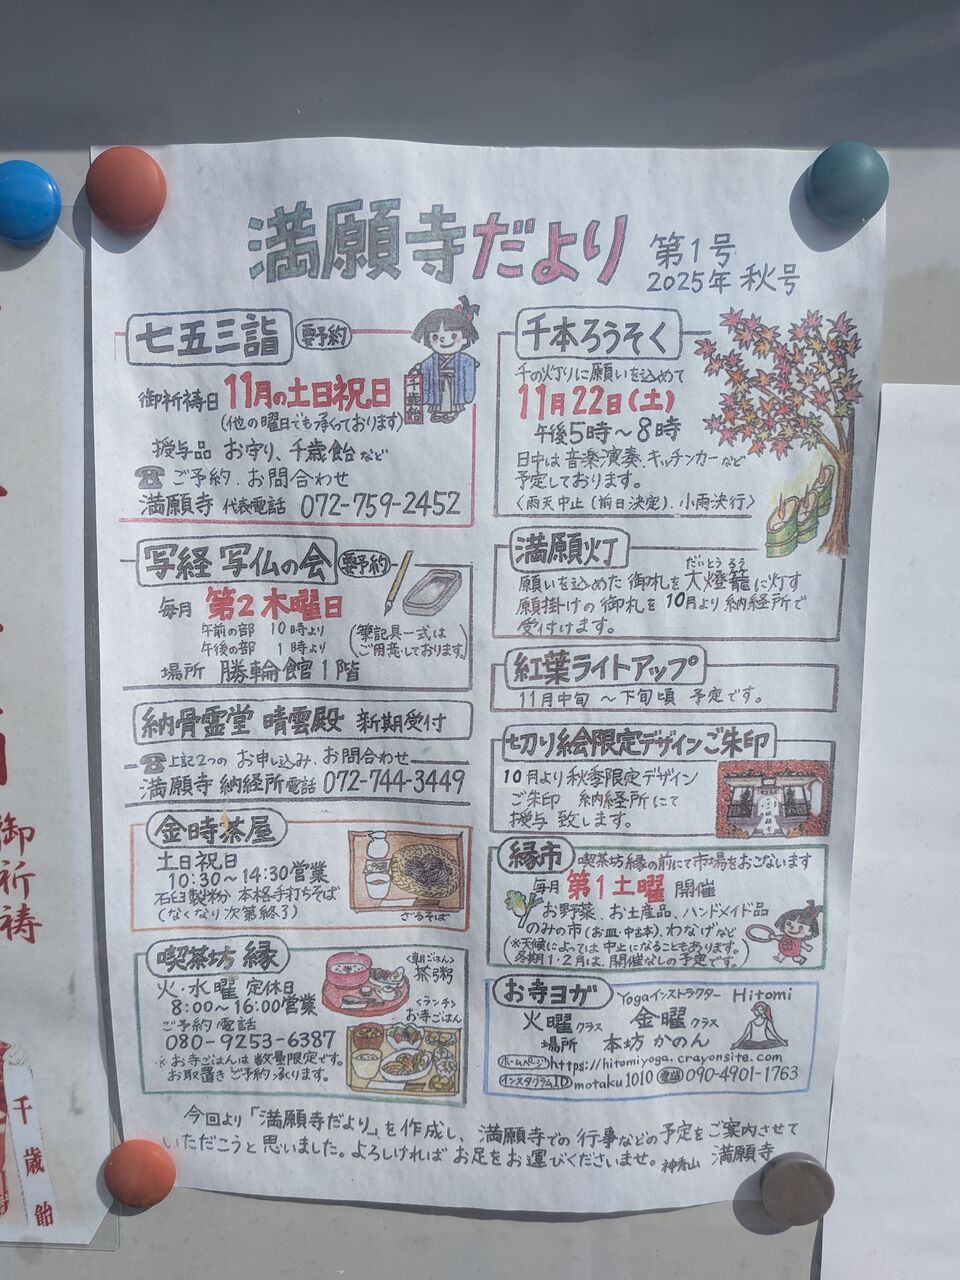 満願寺だより
第1号
2025年 秋号
七五三詣 要予約
御祈祷日 11月の土日祝日
(他の曜日でも承っております)
授与品 お守り、千歳飴など
☎ご予約、お問合わせ
満願寺 代表電話 072-759-2452
千歳飴
写経 写仏の会 要予約
毎月 第2木曜日
午前の部 10時より
午後の部 1時より
(筆記具一式は
ご用意しております。)
場所 勝輪館1階
納骨霊堂 晴雲殿 新期受付
☎上記2つの お申し込み、お問合わせ
満願寺 納経所電話 072-744-3449
金時茶屋
土日祝日
10:30〜14:30営業
石臼製粉 本格手打ちそば
(なくなり次第終了)
ざるそば
喫茶坊 縁
火・水曜 定休日
8:00〜16:00営業
ご予約電話
080-9253-6387
※お寺ごはんは数量限定です。
お取置きご予約承ります。
<朝ごはん>
茶粥
<ランチ>
お寺ごはん
千本ろうそく
千の灯りに願いを込めて
11月22日(土)
午後5時〜8時
日中は音楽演奏、キッチンカーなど
予定しております。
<雨天中止(前日決定)、小雨決行>
満願灯
だいとうろう
願いを込めた御札を大燈籠に灯す
願掛けの御札を10月より納経所で
受付けます。
紅葉ライトアップ
11月中旬 〜下旬頃 予定です。
切り絵限定デザインご朱印
10月より秋季限定デザイン
ご朱印 納経所にて
授与致します。
縁市 喫茶坊縁の前にて市場をおこないます
毎月 第1土曜 開催
お野菜、お土産品、ハンドメイド品
のみの市(お皿・中古本)、わなげなど
(※天候によっては中止になることもあります。
冬期1・2月は、開催なしの予定です。)
お寺ヨガ Yogaインストラクター Hitomi
火曜クラス 金曜クラス
場所 本坊かのん
ホームページ https://hitomiyoga.crayonsite.com
インスタグラムID motaku1010 電話 090-4901-1763
今回より「満願寺だより」を作成し、満願寺での行事などの予定をご案内させて
いただこうと思いました。よろしければお足をお運びくださいませ。神秀山 満願寺
御祈祷
千歳飴